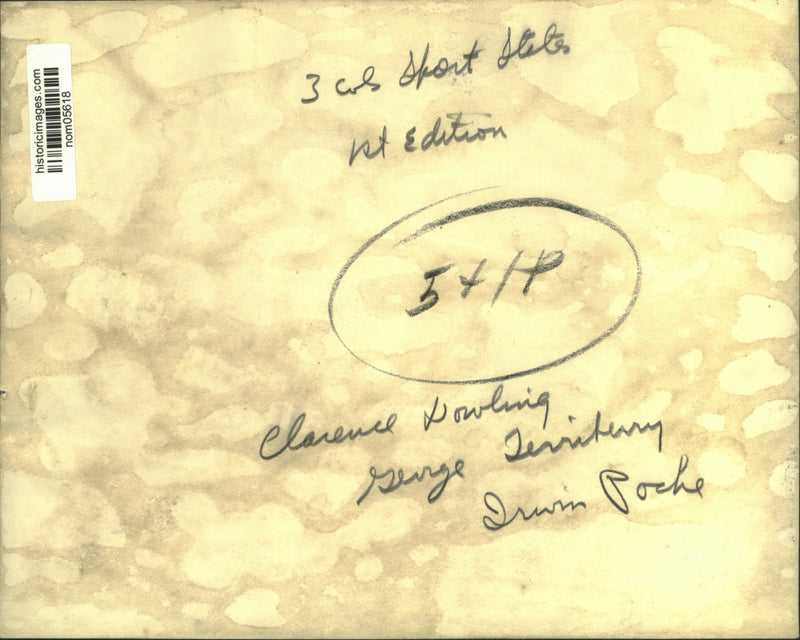 historicimages.com
nom05618
3 cols Sport States
1st Edition
Clarence Dowling
George Terriberry
Irwin Poche